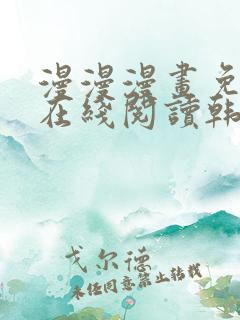 漫漫漫畫免
在綫閱讀韩
戈尔德
未经同意禁止转载